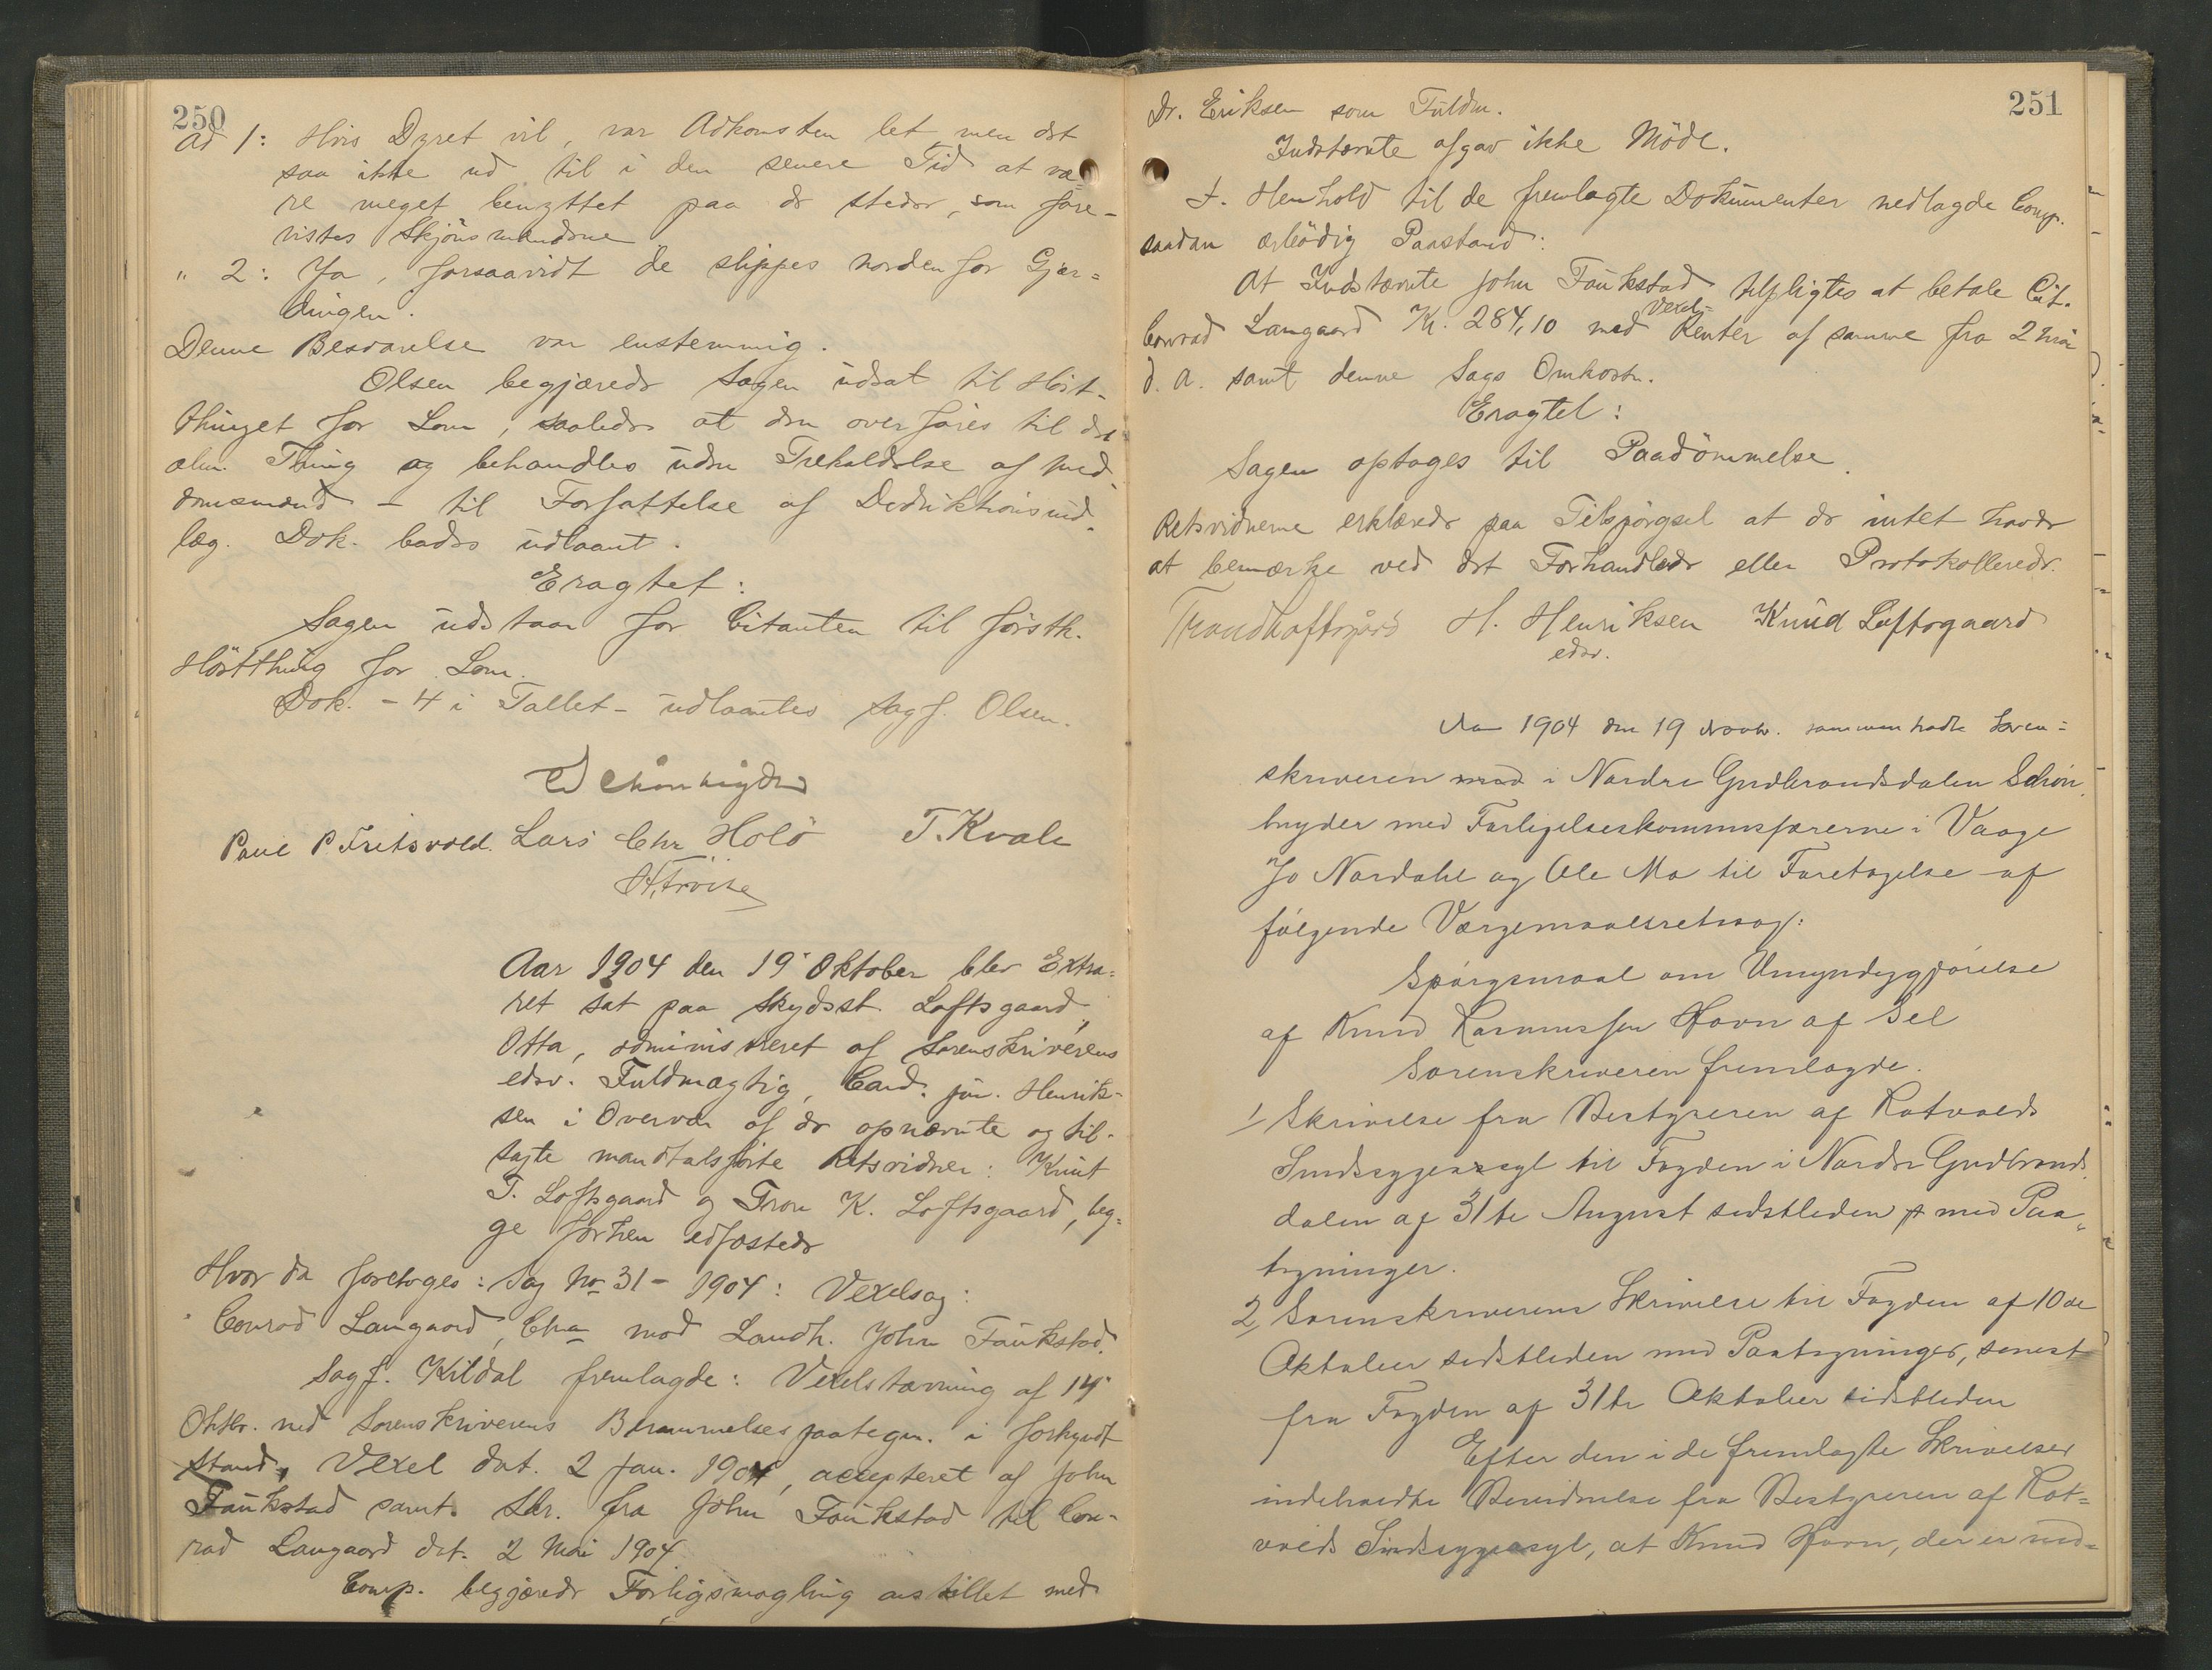 250
Ad 1: Hvis Dyret vil, var Adkomsten let men det
saa ikke ud til i den senere Tid at væ
re meget benyttet paa de steder, som fore-
vistes Skjönsmændene
" 2: Ja, forsaavidt de slippes nordenfor Gjær=
dingen.
Denne Besvarelse var enstemmig.
Olsen begjærede Sagen udsat til Höst-
thinget for Lom, saaledes at den overföres til det
alm. Thing og behandles uden Tilkaldelse af Med-
domsmænd - til Forfattelse af Deduktionsind-
læg. Dok. bades udlaant.
Eragtet:
Sagen udstaar for Citanten til förstk.
Höstthing for Lom.
Dok. - 4 i Tallet - udlaantes Sagf. Olsen.
Schönbigder
Paul P. Fritsvold. Lars Chr Holö T. Kvale
Aar 1904 den 19' Oktober blev Extra=
ret sat paa Skydsst. Loftsgaard,
Otta, administreret af Sorenskriverens
edsv. Fuldmægtig, Cand. jur. Henrik-
sen i Overvær af de opnævnte og til-
sagte mandtalsförte Retsvidner: Knut
T. Loftsgaard og Tron K. Loftsgaard, beg=
ge förhen edfæstede
Hvor da foretoges: Sag No 31 - 1904: Vexelsag:
Conrad Langaard, Chra mod Landh. John Faukstad.
Sagf. Kildal fremlagde: Vexelstævning af 14'
Oktbr. med Sorenskriverens Berammelsespaategn. i forkyndt
Stand, Vexel dat. 2 Jan. 1904, accepteret af John
Faukstad samt Skr. fra John Faukstad til Con-
rad Langaard dat. 2 Mai 1904.
Comp. begjærede Forligsmægling anstillet med
251
Dr. Eriksen som Fuldm.
Indstævnte afgav ikke Möde.
I. Henhold til de fremlagte Dokumenter nedlagde Comp.
saadan ærbödig Paastand:
At Indstævnte John Faukstad tilpligtes at betale Cit.
Conrad Langaard Kr. 284,10 med Vexel- Renter af samme fra 2 Mai
d. A. samt denne Sags Omkostn.
Eragtet:
Sagen optages til Paadömmelse.
Retsvidnerne erklærede paa Tilspörgsel at de intet havde
at bemærke ved det Forhandlede eller Protokollerede.
Trond Loftsgård H. Henriksen Knud Loftsgaard
edsv.
Aar 1904 den 19 Novbr. sammentraadte Soren=
skriveren med i Nordre Gudbrandsdalen Schön
bygder med Forligelseskommissærerne i Vaage
Jo Nordahl og Ole Mo til Foretagelse af
fölgende Værgemaalsretssag:
Spörgsmaal om Umyndiggjörelse
af Knud Rasmussen Havn af Sel
Sorenskriveren fremlagde.
1, Skrivelse fra Bestyreren af Rotvolds
Sindssygeasyl til Fogden i Nordre Gudbrands
dalen af 31te August sidstleden med Paa=
tegninger.
2, Sorenskriverens Skrivelse til Fogden af 10de
Oktober sidstleden med Paategninger, senest
fra Fogden af 31te Oktober sidstleden
Efter den i de fremlagte Skrivelser
indeholdte Bevidnelse fra Bestyreren af Rot=
volds Sindssygeasyl, at Knud Havn, der er ind=